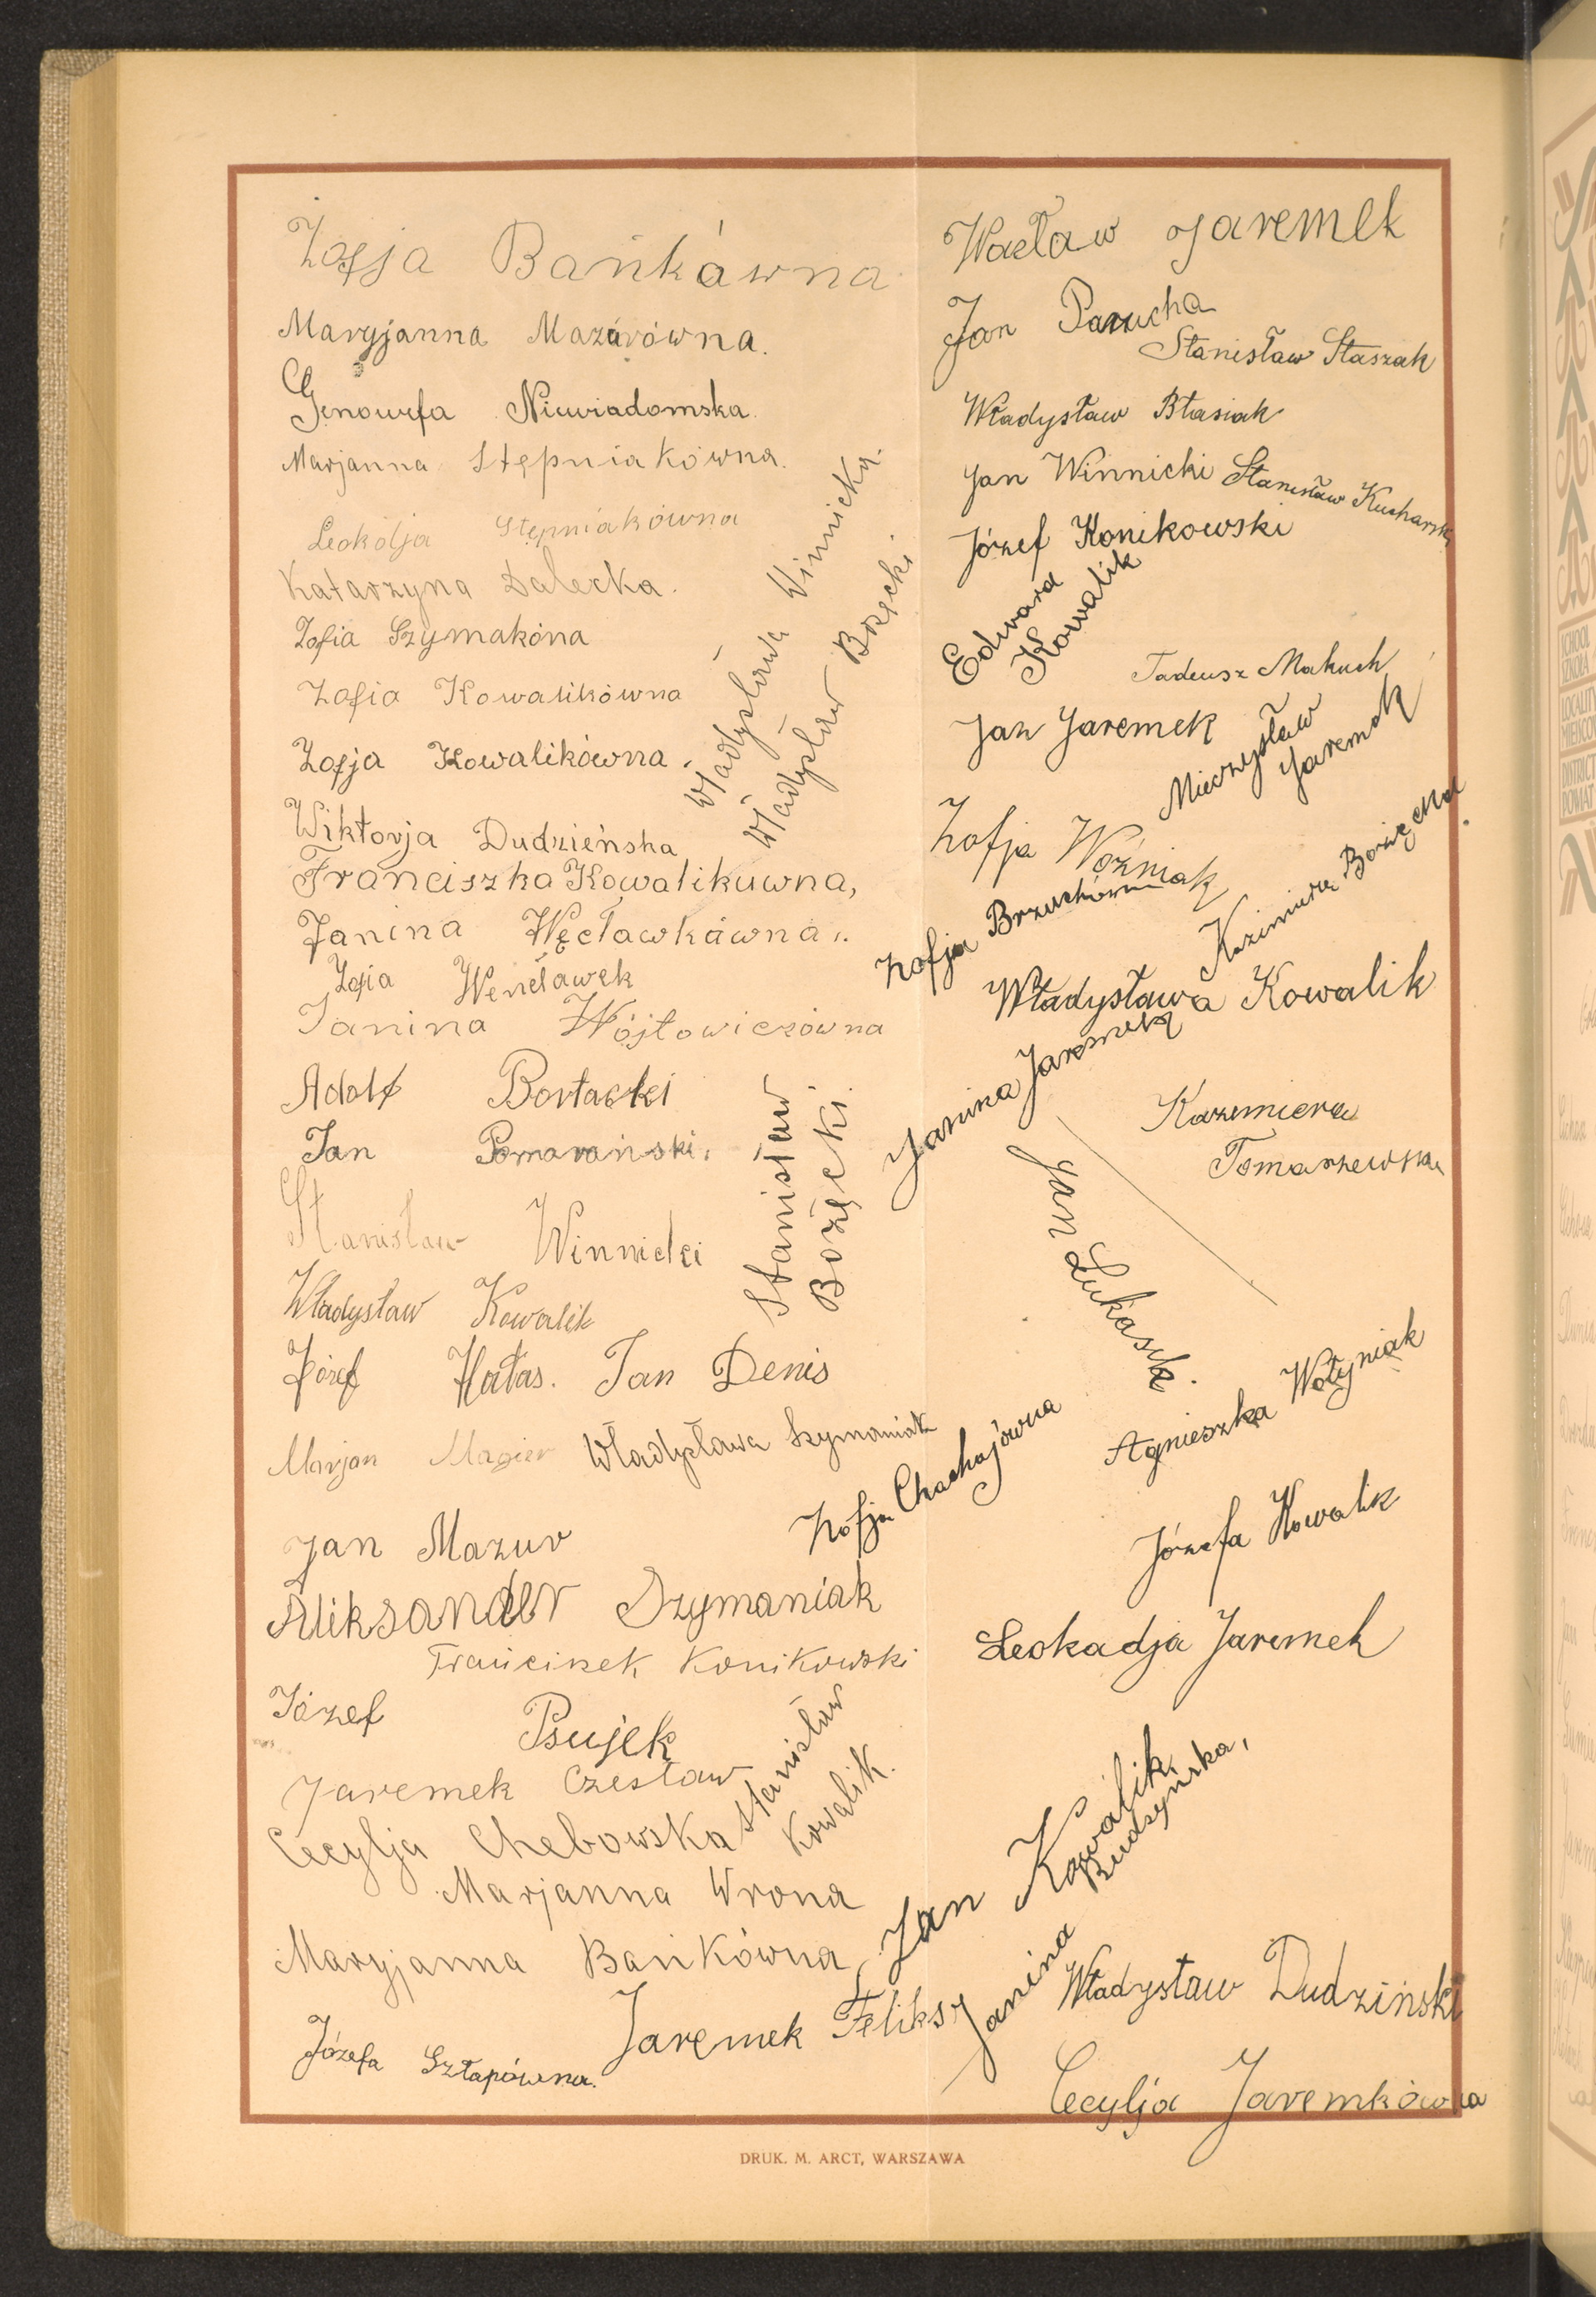 Zofja Bańkówna
Maryjanna Mazurówna.
Genowefa Niewiadomska.
Marjanna Stępniakówna.
Leokdja Stępniakówna
Katarzyna Dalecka.
Zofia Szymakóna
Zofia Kowalikówna
Zofja Kowalikówna.
Władysława Winnicka.
Władysław Bozęcki.
Wiktorja Dudzieńska
Franciszka Kowalikuwna,
Janina Węcławkówna.
Zofia Wencławek
Janina Wójtowiczówna
Adolf Bortacki
Jan Pomarański.
Stanisław
Bozęcki.
Stanisław Winnicki
Władysław Kowalik
Józef Hałas. Jan Denis
Marjan Magier Władysława Szymaniak
Jan Mazur
Aleksander Szymaniak
Franciszek Konikowski
Józef Psujek
Jaremek Czesław
Stanisław
Kowalik.
Cecylja Chebowska
Marjanna Wrona
Maryjanna Bańkówna
Jaremek Feliks
Józefa Sztapówna.
Wacław Jaremek
Jan Parucha
Stanisław Staszak
Władysław Błasiak
Jan Winnicki Stanisław Kucharski
Józef Konikowski
Edward
Kowalik
Tadeusz Makuch
Jan Jaremek
Mieczysław
Jaremek
Zofja Woźniak
Zofja Brzuchówna
Kazimiera Bozięcka.
Władysława Kowalik
Janina Jaremek
Kazimiera
Tomaszewska
Jan Łukasik.
Agnieszka Wołyniak
Zofja Chachajówna
Józefa Kowalik
Leokadja Jaremek
Jan Kowalik.
Janina Budzyńska,
Władysław Dudziński
Cecylja Jaremkówna
DRUK. M. ARCT, WARSZAWA
SCHOOL
SZKOŁA
LOCALITY
DISTRICT
POWIAT